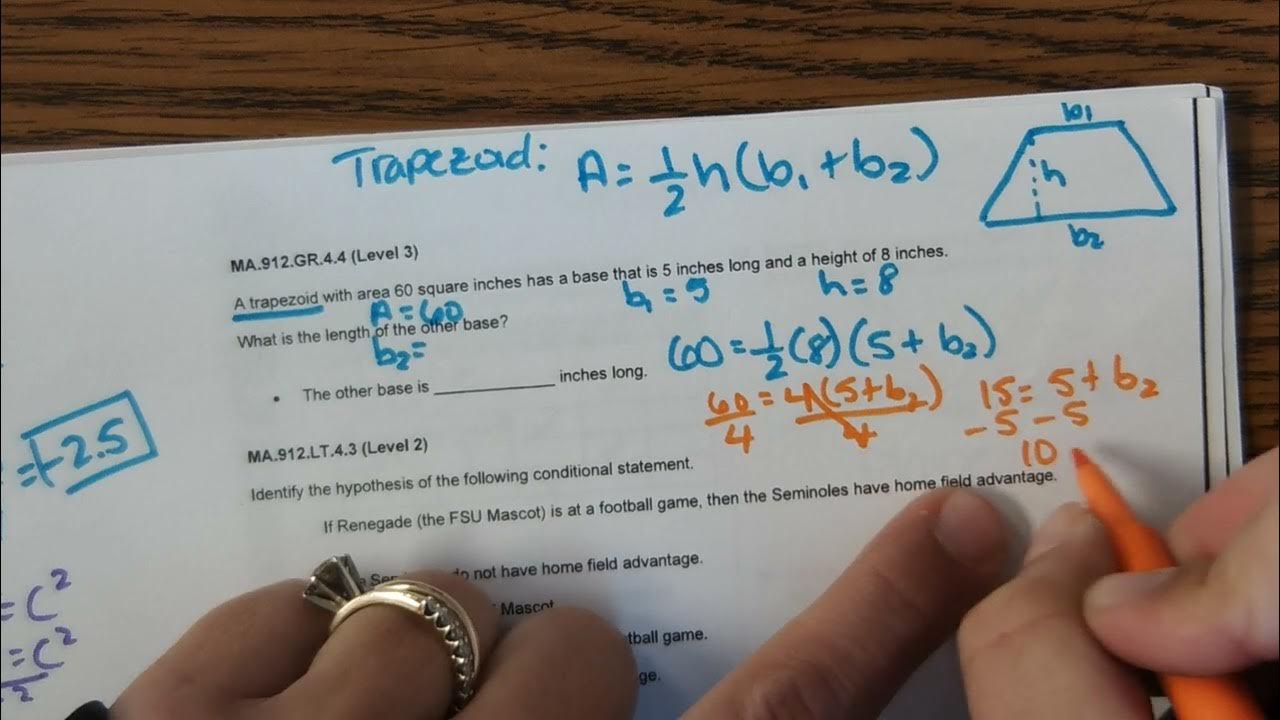 b1
Trapezoid: A = 1/2 h(b1 + b2)
h
b2
MA.912.GR.4.4 (Level 3)
A trapezoid with area 60 square inches has a base that is 5 inches long and a height of 8 inches.
A = 60
b1 = 5
h = 8
What is the length of the other base?
b2 =
60 = 1/2 (8) (5 + b2)
• The other base is ____________ inches long.
60 = 4(5+b2)
4 4
15 = 5 + b2
-5 -5
10
= + 2.5
MA.912.LT.4.3 (Level 2)
Identify the hypothesis of the following conditional statement.
If Renegade (the FSU Mascot) is at a football game, then the Seminoles have home field advantage.
do not have home field advantage.
Mascot
game.
= C²
= C²
2